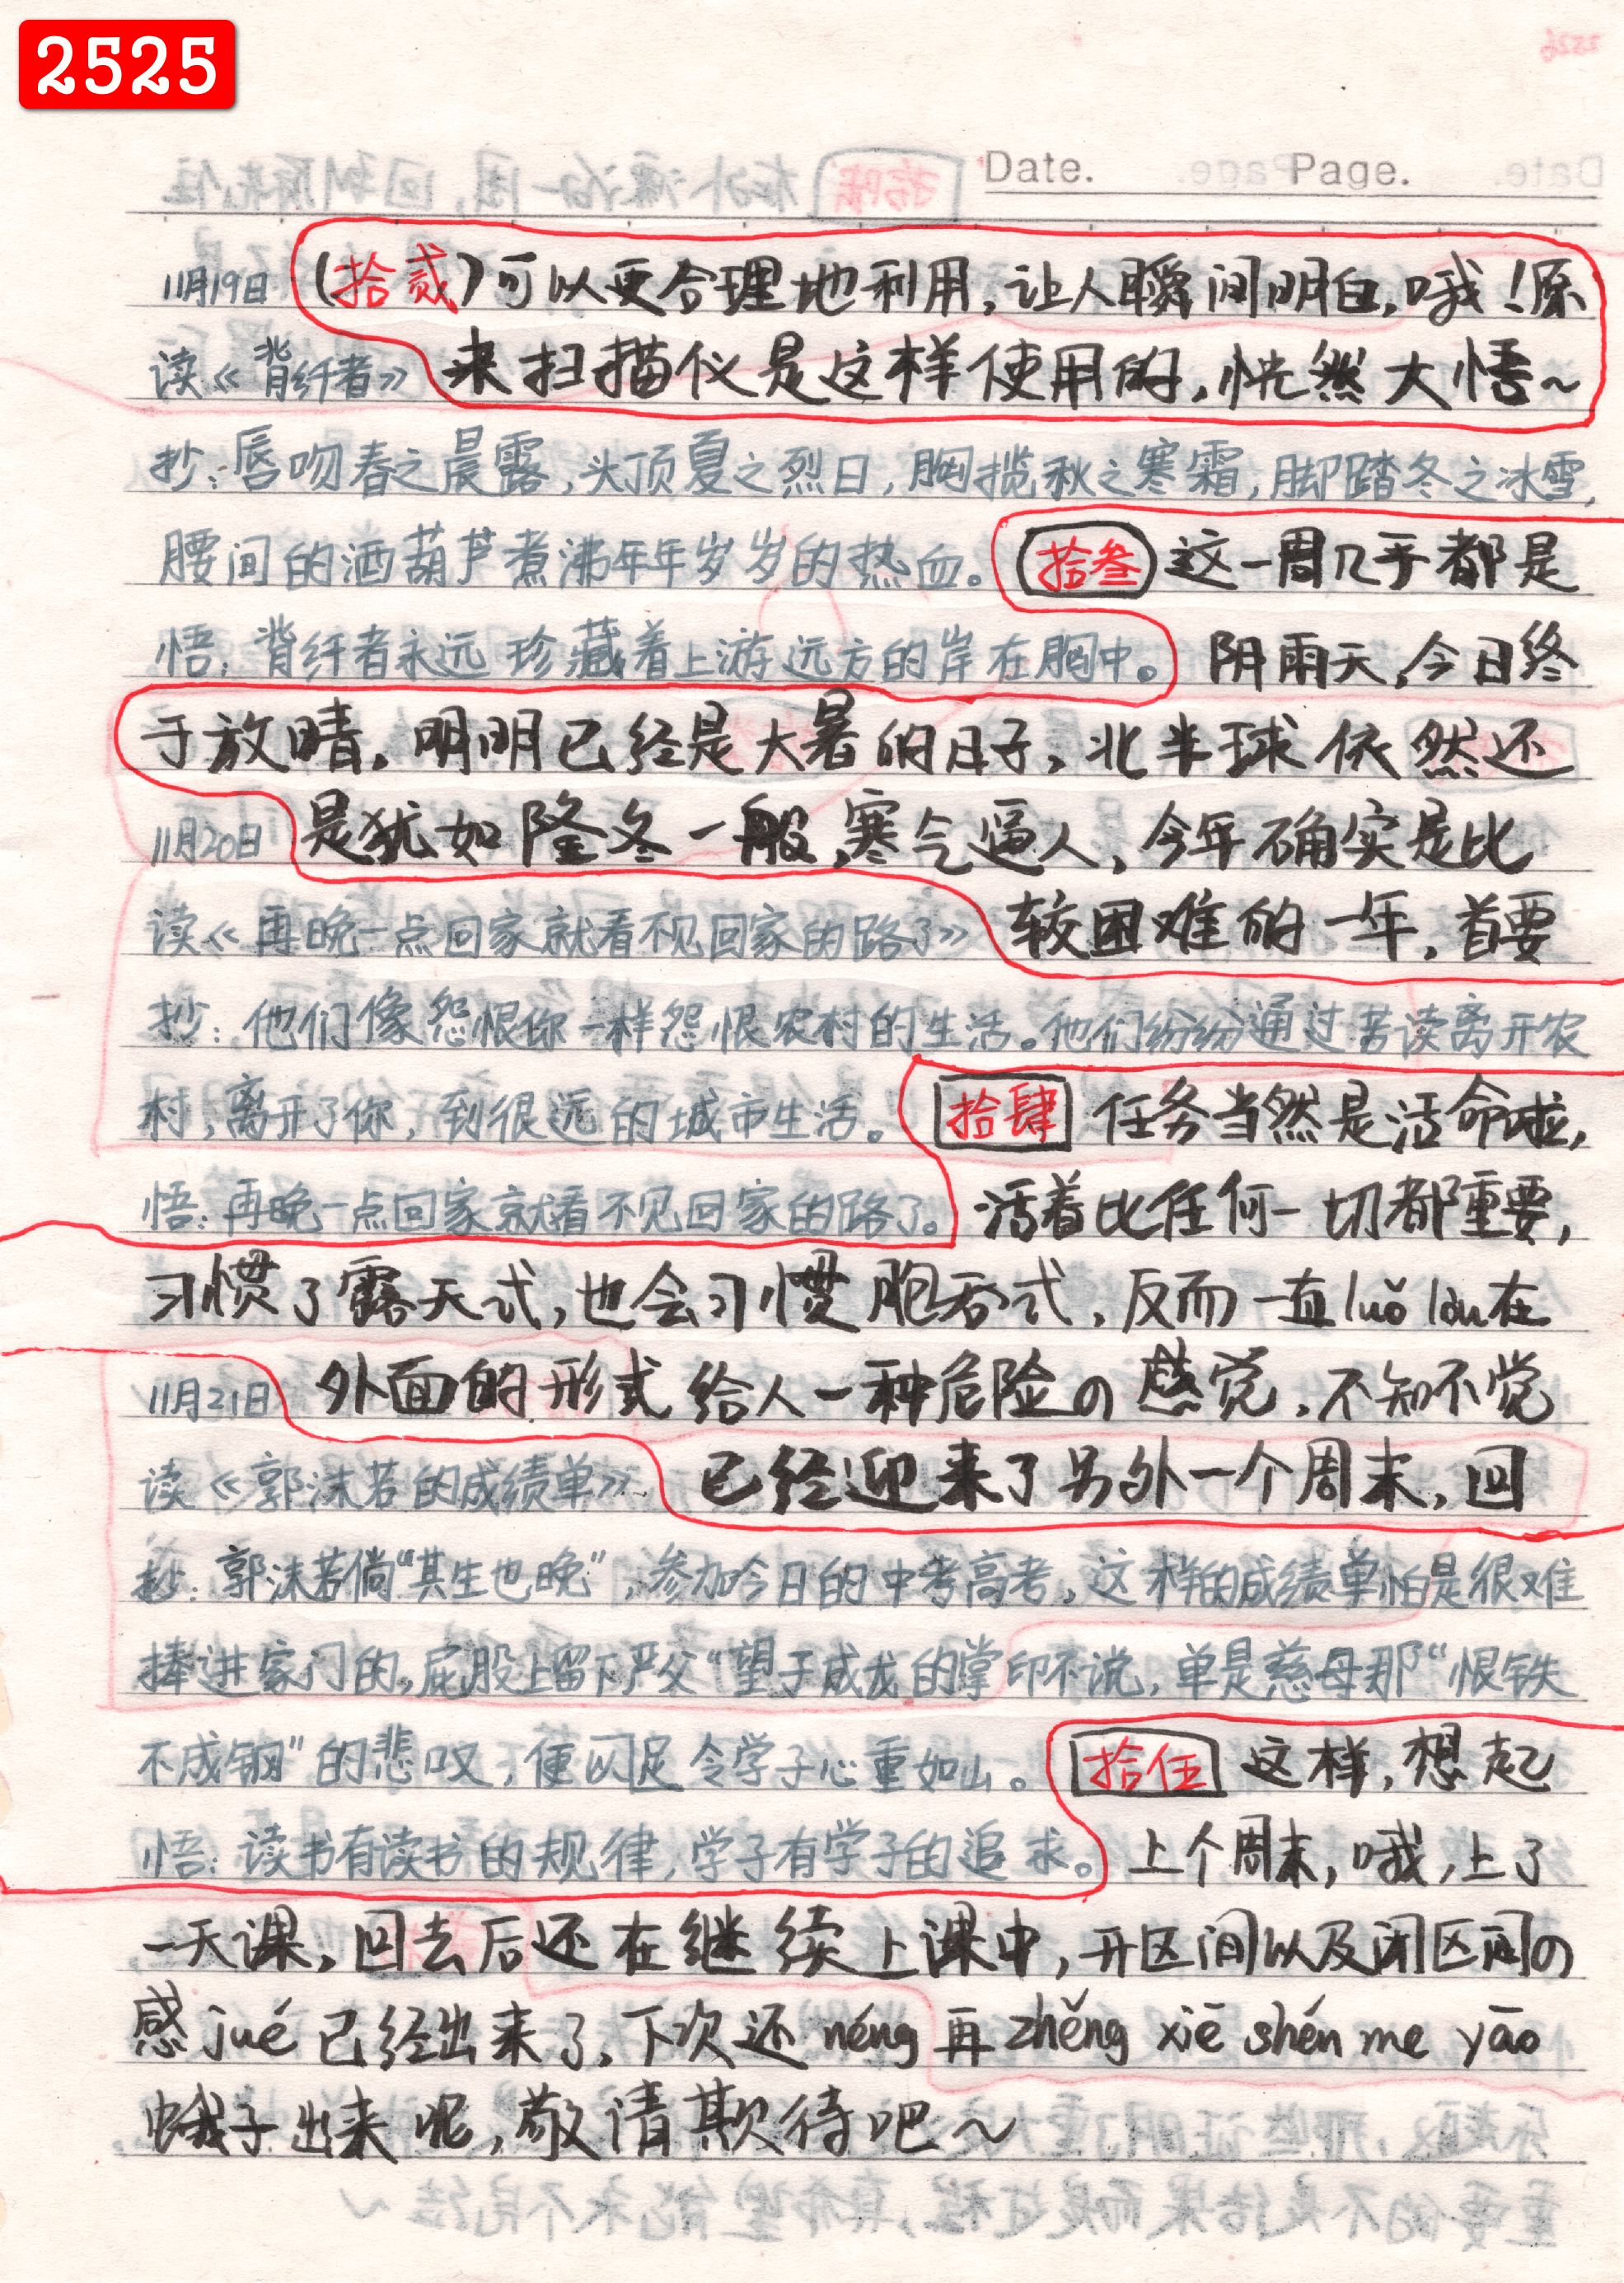 2525
Date. Page.
11月19日 (拾贰)可以更合理地利用,让人瞬间明白,哦!原
读《背纤者》 来扫描仪是这样使用的,恍然大悟~
抄:唇吻春之晨露,头顶夏之烈日,胸揽秋之寒霜,脚踏冬之冰雪,
腰间的酒葫芦煮沸年年岁岁的热血。 拾叁 这一周几乎都是
悟:背纤者永远珍藏着上游远方的岸在胸中。 阴雨天,今日终
于放晴,明明已经是大暑的日子,北半球依然还
11月20日 是犹如隆冬一般,寒气逼人,今年确实是比
读《再晚一点回家就看不见回家的路了》 较困难的一年,首要
抄:他们像怨恨你一样怨恨农村的生活。他们纷纷通过苦读离开农
村,离开了你,到很远的城市生活。 拾肆 任务当然是活命啦,
悟:再晚一点回家就看不见回家的路了。 活着比任何一切都重要,
习惯了露天式,也会习惯胞吞式,反而一直luǒ lòu在
11月21日 外面的形式给人一种危险の感觉,不知不觉
读《郭沫若的成绩单》 已经迎来了另外一个周末,回
抄:郭沫若倘“其生也晚”,参加今日的中考高考,这样的成绩单怕是很难
捧进家门的,屁股上留下严父“望子成龙的掌印不说,单是慈母那“恨铁
不成钢”的悲叹,便以足令学子心重如山。 拾伍 这样,想起
悟:读书有读书的规律,学子有学子的追求。 上个周末,哦,上了
一天课,回去后还在继续上课中,开区间以及闭区间の
感jué已经出来了,下次还néng再zhěng xiē shén me yāo
蛾子出来呢,敬请欺待吧~